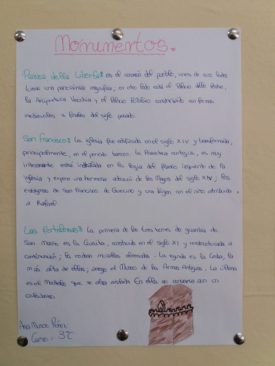 Monumentos.
Piazza della Libertà: es el corazón del pueblo, unos de sus lados
tiene una panorámica magnífica, en otro lado está el Palacio
la Arquitectura Vaticana y el Palacio Público construido en formas
medievales a finales del siglo pasado.
San Francisco: La iglesia fue edificada en el siglo XIV y transformada,
principalmente, en el periodo barroco. La Pinacoteca contigua, es muy
interesante está instalada en la logia del claustro izquierdo de la
iglesia y expone una hermosa adoración de los Magos del siglo XIV, los
estigmas de San Francisco de Guercino y una Virgen con el niño atribuida
a Rafael.
Las fortalezas: La primera de las tres torres de guardia de
San Marino es la Guaita, construida en el siglo XI y reconstruida a
continuación; la rodean murallas almenadas. La segunda es la Cesta, la
más alta de ellas; acoge el Museo de las Armas Antiguas. La última
es el Montale que se alza aislada. En ella se
Ana
Curso: 3ºC